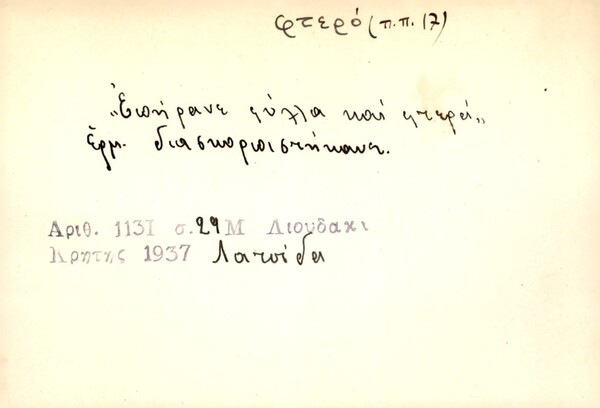 φτερό (π.π. 17)
„Ἐπήρανε φύλλα καί φτερά„
Ἑρμ. διασκορπιστήκανε.
Αριθ. 1131 σ. 29 Μ Λιουδακι
Κρητης 1937 Λατσίδα